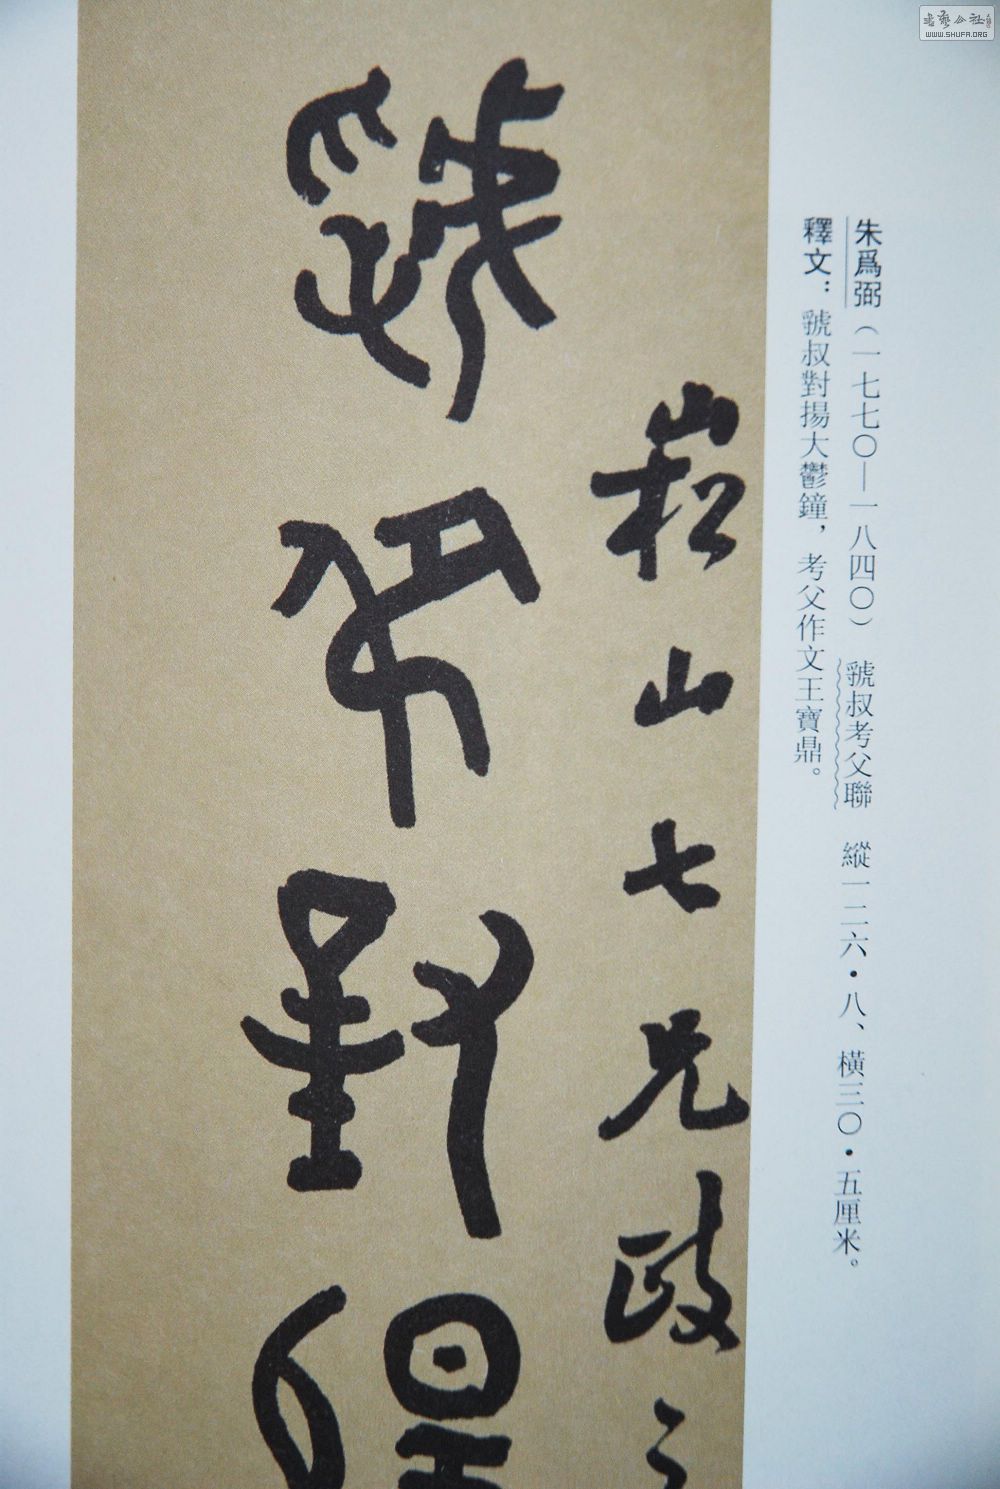 朱爲弼(一七七〇—一八四〇) 虢叔考父聯 縱一二六·八、橫三〇·五厘米。
釋文:虢叔對揚大鬱鐘,考父作文王寶鼎。
崧山七兄政之
虢叔對揚
WWW.SHUFA.ORG